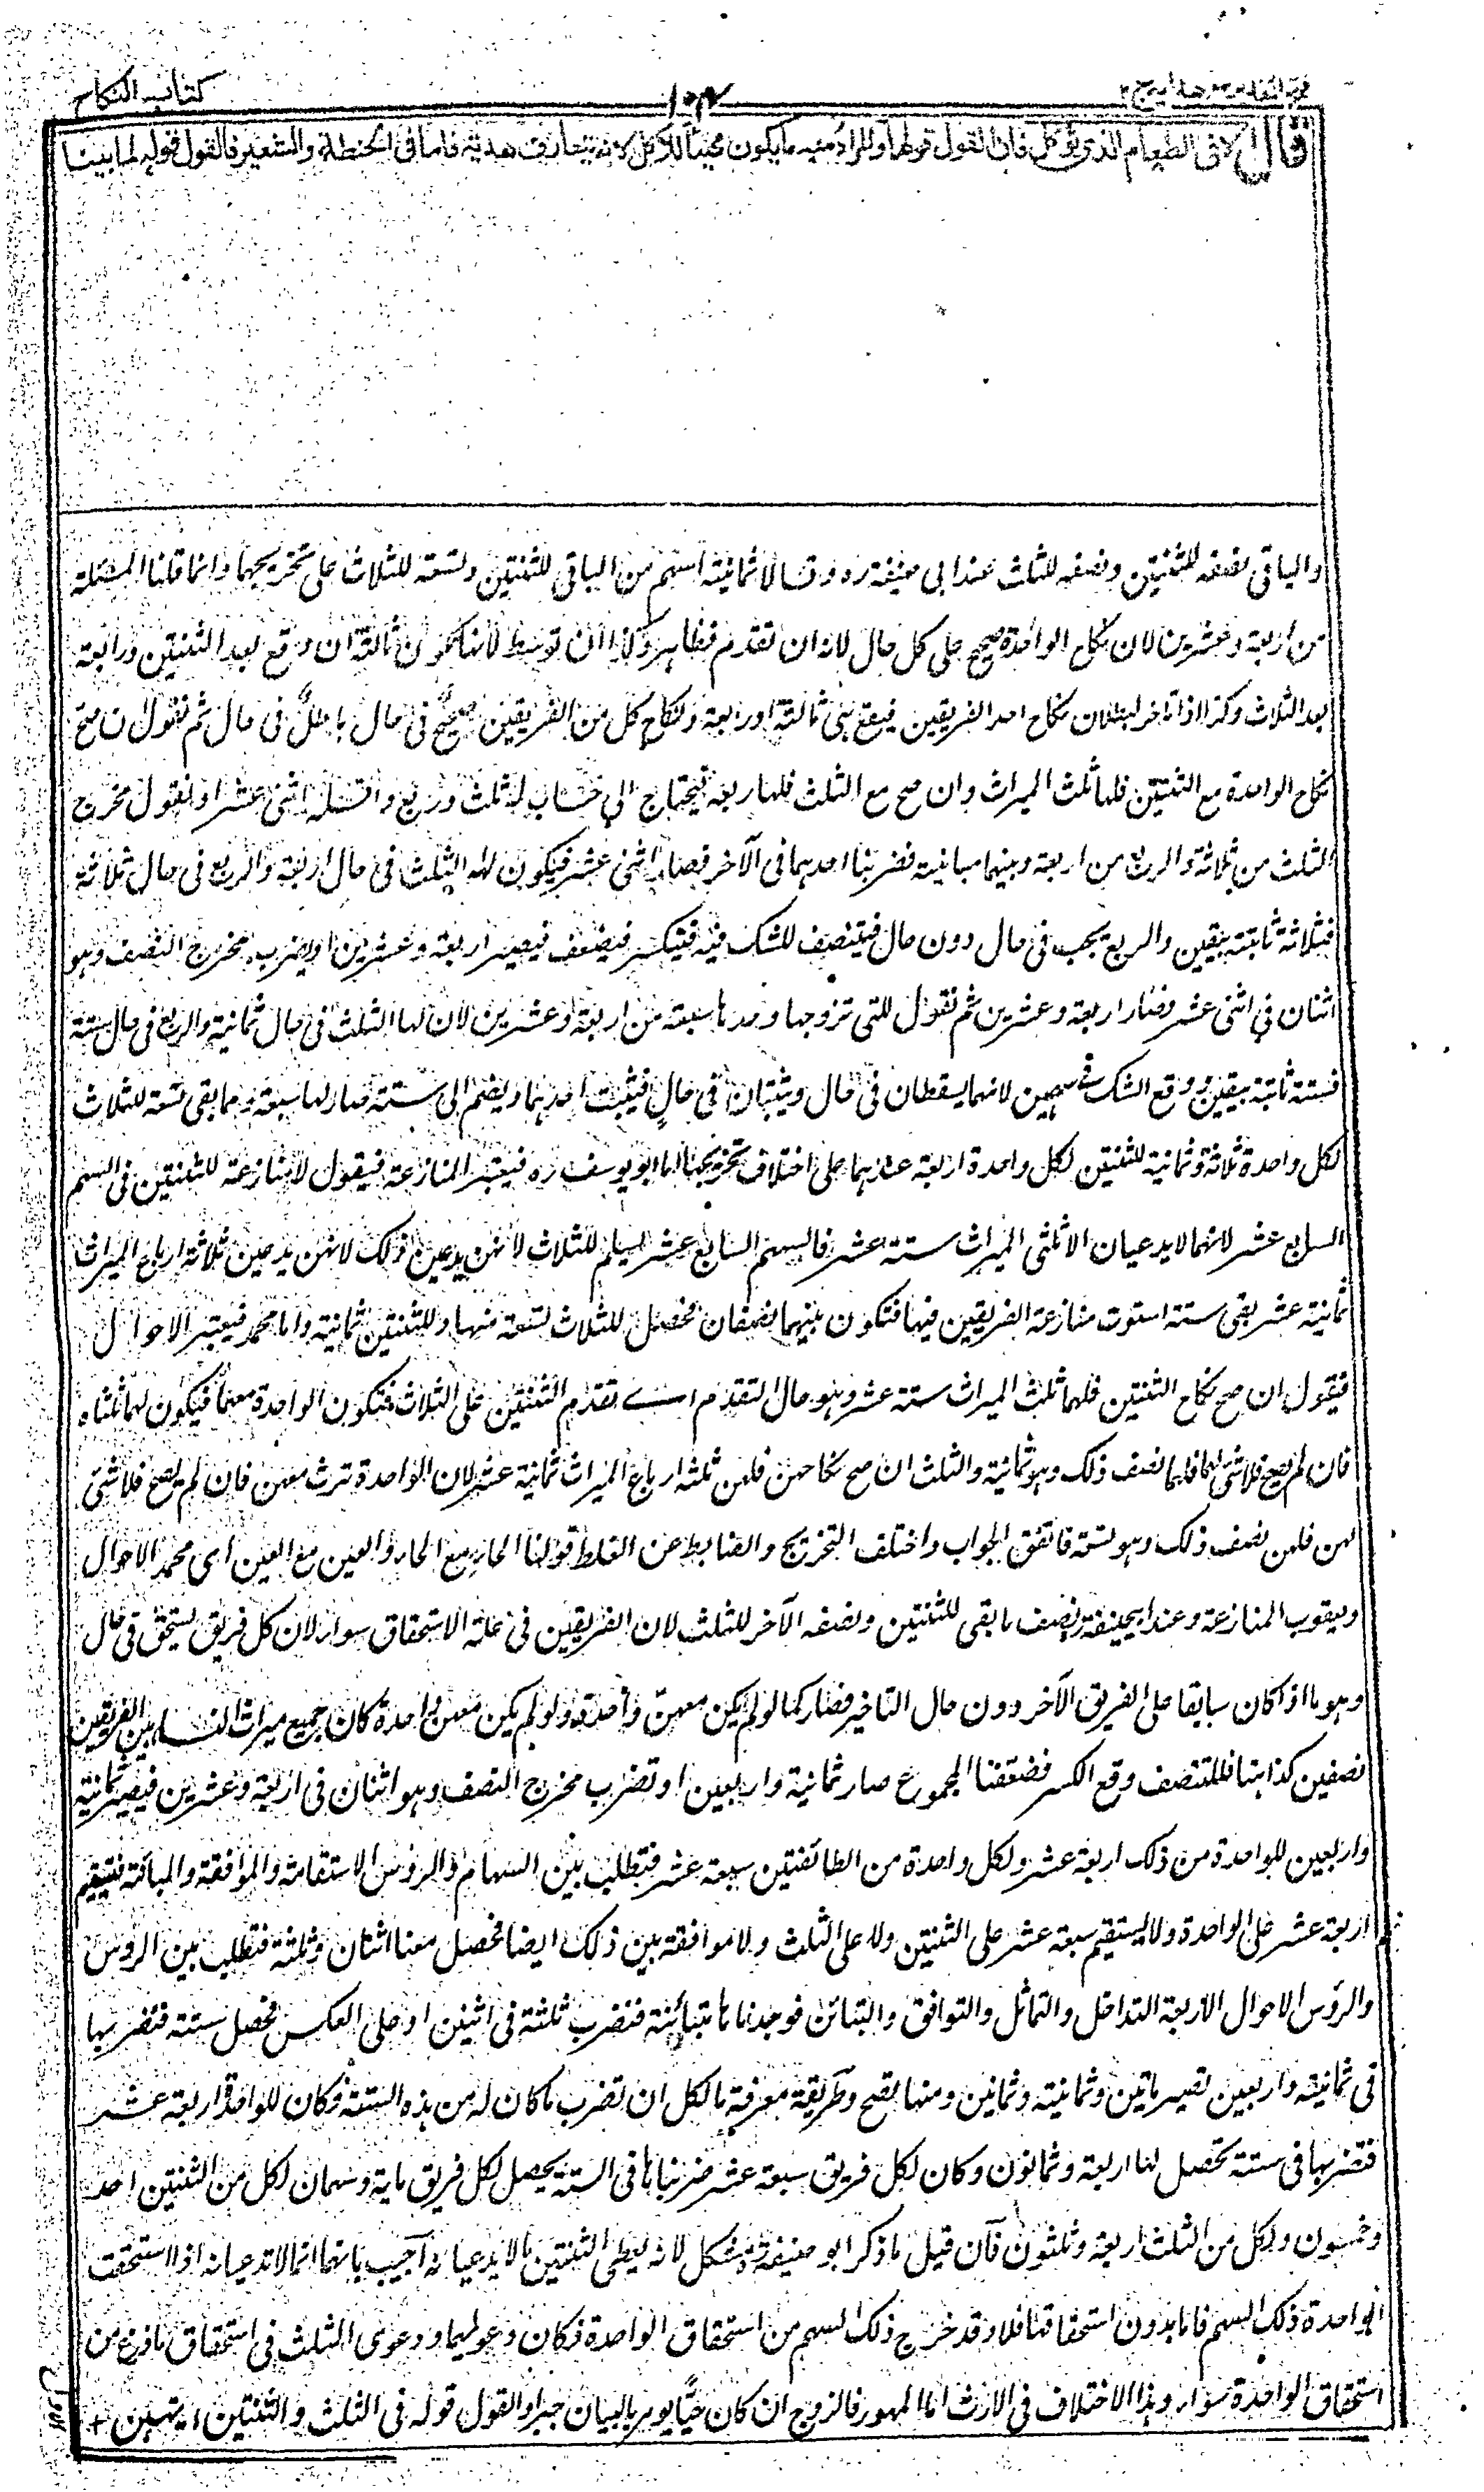 كتاب النكاح
١٥٢
فتح القدير مع هداية ج ٢
قال الا في الطعام الذي يؤكل فان القول قولها والمراد منه ما يكون مهيئا للاكل لانه يتعارف هدية فاما في الحنطة والشعير فالقول قوله لما بينا
والباقى نصفه للثنتين ونصفه للثلث عند ابى حنيفة ره وقالا ثمانية اسهم من الباقى للثنتين وتسعة للثلاث على تخريجهما وانما قلنا المسئلة
من اربعة وعشرين لان نكاح الواحدة صحيح على كل حال لانه ان تقدم فظاهر وكذا ان توسط لانها تكون ثالثة ان وقع بعد الثنتين ورابعة
بعد الثلاث وكذا اذا تأخر لبطلان نكاح احد الفريقين فيقع هى ثالثة اورابعة ونكاح كل من الفريقين صحيح فى حال باطل فى حال ثم نقول ان صح
نكاح الواحدة مع الثنتين فلها ثلث الميراث وان صح مع الثلث فلها ربعه فيحتاج الى حساب له ثلث وربع واقله اثنى عشر او نقول مخرج
الثلث من ثلاثة والربع من اربعة وبينهما مباينة فضربنا احدهما فى الآخر فصار اثنى عشر فيكون لها الثلث فى حال اربعة والربع فى حال ثلاثة
فثلاثة ثابتة بيقين والربع يجب فى حال دون حال فيتنصف للشك فيه فيتكسر فيضعف فيصير اربعة وعشرين او يضرب مخرج النصف وهو
اثنان فى اثنى عشر فصار اربعة وعشرين ثم نقول للتى تزوجها وحدها سبعة من اربعة وعشرين لان لها الثلث فى حال ثمانية والربع فى حال ستة
فستة ثابتة بيقين ووقع الشك فى سهمين لانهما يسقطان فى حال ويثبتان فى حال فيثبت احدهما ويضم الى ستة صار لها سبعة وما بقى تسعة للثلاث
لكل واحدة ثلاثة وثمانية للثنتين لكل واحدة اربعة عندهما على اختلاف تخريجهما اما ابو يوسف ره فيعتبر المنازعة فيقول لا منازعة للثنتين فى السهم
السابع عشر لانهما لا يدعيان الا ثلثى الميراث ستة عشر فالسهم السابع عشر ليسلم للثلاث لانهن يدعين ذلك لانهن يدعين ثلاثة ارباع الميراث
ثمانية عشر بقى ستة استوت منازعة الفريقين فيها فتكون بينهما نصفان فحصل للثلاث تسعة منها وللثنتين ثمانية واما محمد فيعتبر الاحوال
فيقول ان صح نكاح الثنتين فلهما ثلثا الميراث ستة عشر وهو حال التقدم اى تقدم الثنتين على الثلاث فتكون الواحدة معهما فيكون لهما ثلثاه
فان لم يصح فلا شئ لهما فلهما نصف ذلك وهو ثمانية والثلث ان صح نكاحهن فلهن ثلثة ارباع الميراث ثمانية عشر لان الواحدة ترث معهن فان لم يصح فلا شئ
لهن فلهن نصف ذلك وهو تسعة فاتفق الجواب واختلف التخريج والضابط عن الغلط قولنا الحاء مع الحاء والعين مع العين اى محمد الاحوال
ويعقوب المنازعة وعند ابى حنيفة ره نصف ما بقى للثنتين ونصفه الآخر للثلث لان الفريقين فى علة الاستحقاق سواء لان كل فريق يستحق فى حال
وهو ما اذا كان سابقا على الفريق الآخر دون حال التاخير فصار كما لو لم يكن معهن واحدة ولو لم يكن معهن واحدة كان جميع ميراث النساء بين الفريقين
نصفين كذا هنا فللتنصف وقع الكسر فضعفنا المجموع صار ثمانية واربعين او تضرب مخرج النصف وهو اثنان فى اربعة وعشرين فيصير ثمانية
واربعين للواحدة من ذلك اربعة عشر ولكل واحدة من الطائفتين سبعة عشر فتطلب بين السهام والرؤس الاستقامة والموافقة والمباينة فتستقيم
اربعة عشر على الواحدة ولا يستقيم سبعة عشر على الثنتين ولا على الثلث ولا موافقة بين ذلك ايضا فحصل معنا اثنان وثلثة فتطلب بين الرؤس
والرؤس الاحوال الاربعة التداخل والتماثل والتوافق والتباين فوجدناها متباينة فنضرب ثلثة فى اثنين او على العكس فحصل ستة فنضربها
فى ثمانية واربعين تصير مأتين وثمانية وثمانين ومنها تصح وطريقة معرفة ما لكل ان تضرب ما كان له من هذه الستة فكان للواحدة اربعة عشر
فنضربها فى ستة تحصل لها اربعة وثمانون وكان لكل فريق سبعة عشر ضربناها فى الستة يحصل لكل فريق مأية وسهمان لكل من الثنتين احد
وخمسون ولكل من الثلث اربعة وثلثون فان قيل ما ذكر ابو حنيفة ره مشكل لانه يعطى الثنتين ما لا يدعيانه اجيب بانهما انما لا تدعيانه اذا استحقت
الواحدة ذلك السهم فاما بدون استحقاقها فلا وقد خرج ذلك السهم من استحقاق الواحدة فكان دعواهما ودعوى الثلث فى استحقاق ما فرغ من
استحقاق الواحدة سواء وهذا الاختلاف فى الارث اما المهور فالزوج ان كان حيا يؤمر بالبيان جبرا والقول قوله فى الثلث والثنتين ايتهن +